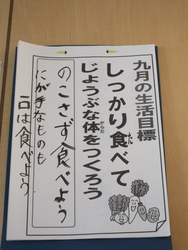 九月の生活目標
しっかり食べて
じょうぶな体をつくろう
のこさず食べよう
にが手なものも
一口は食べよう